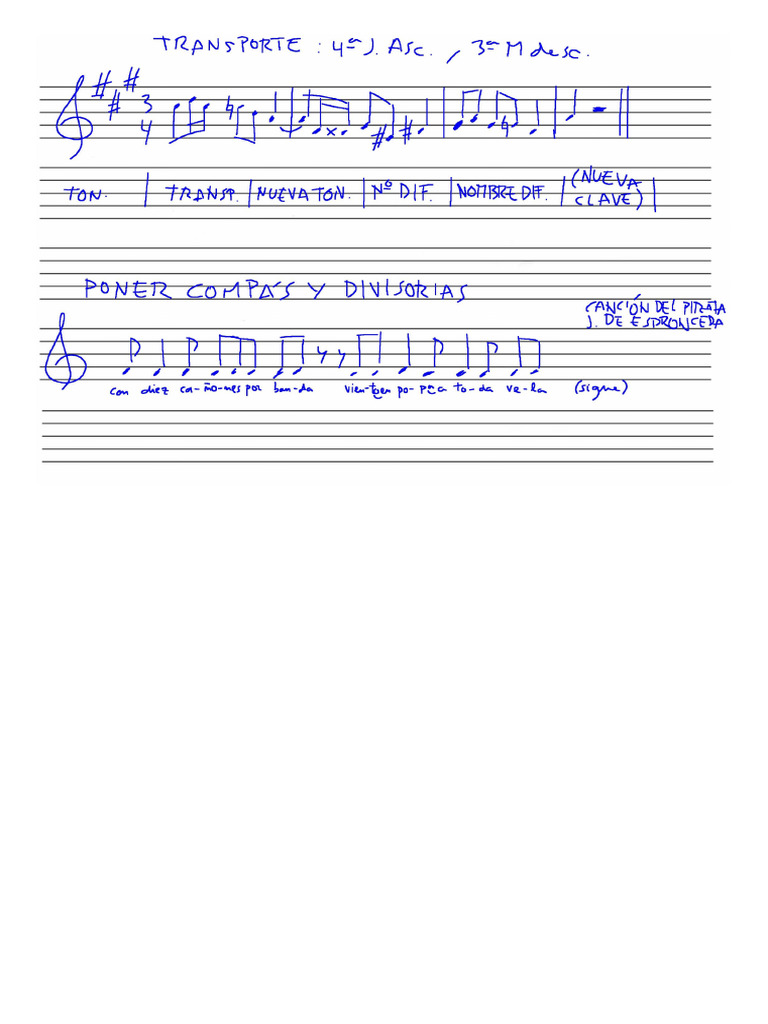 TRANSPORTE : 4ª J. ASC. , 3ª M desc.
3
4
TON. | TRANSP. | NUEVA TON. | Nº DIF. | NOMBRE DIF. | (NUEVA CLAVE) |
PONER COMPÁS Y DIVISORIAS
CANCIÓN DEL PIRATA
J. DE ESPRONCEDA
con diez ca-ño-nes por ban-da vien-toen po-pa a to-da ve-la (sigue)